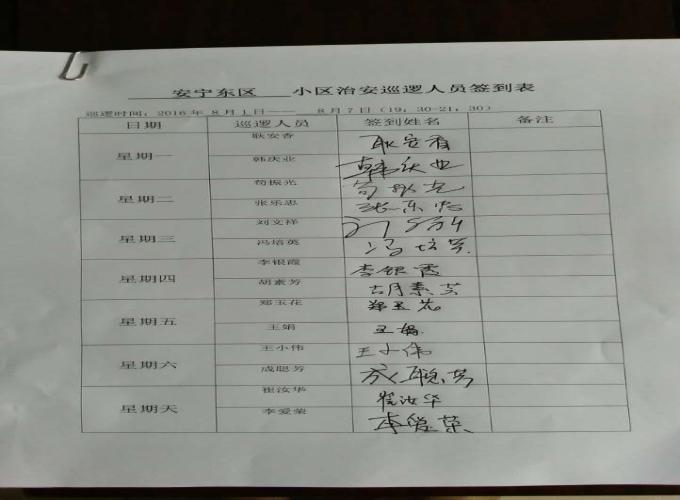 安宁东区 小区治安巡逻人员签到表
巡逻时间：2016 年 8 月 1 日—— 8 月 7 日（19：30-21：30）
日期 巡逻人员 签到姓名 备注
星期一 耿安香 耿安香
韩庆业 韩庆业
星期二 苟振光 苟振光
张乐忠 张乐忠
星期三 刘文祥
冯培英 冯培英
星期四 李银霞 李银霞
胡素芳 胡素芳
星期五 郑玉花 郑玉花
王娟 王娟
星期六 王小伟 王小伟
成聪芳 成聪芳
星期天 崔汝华 崔汝华
李爱荣 李爱荣